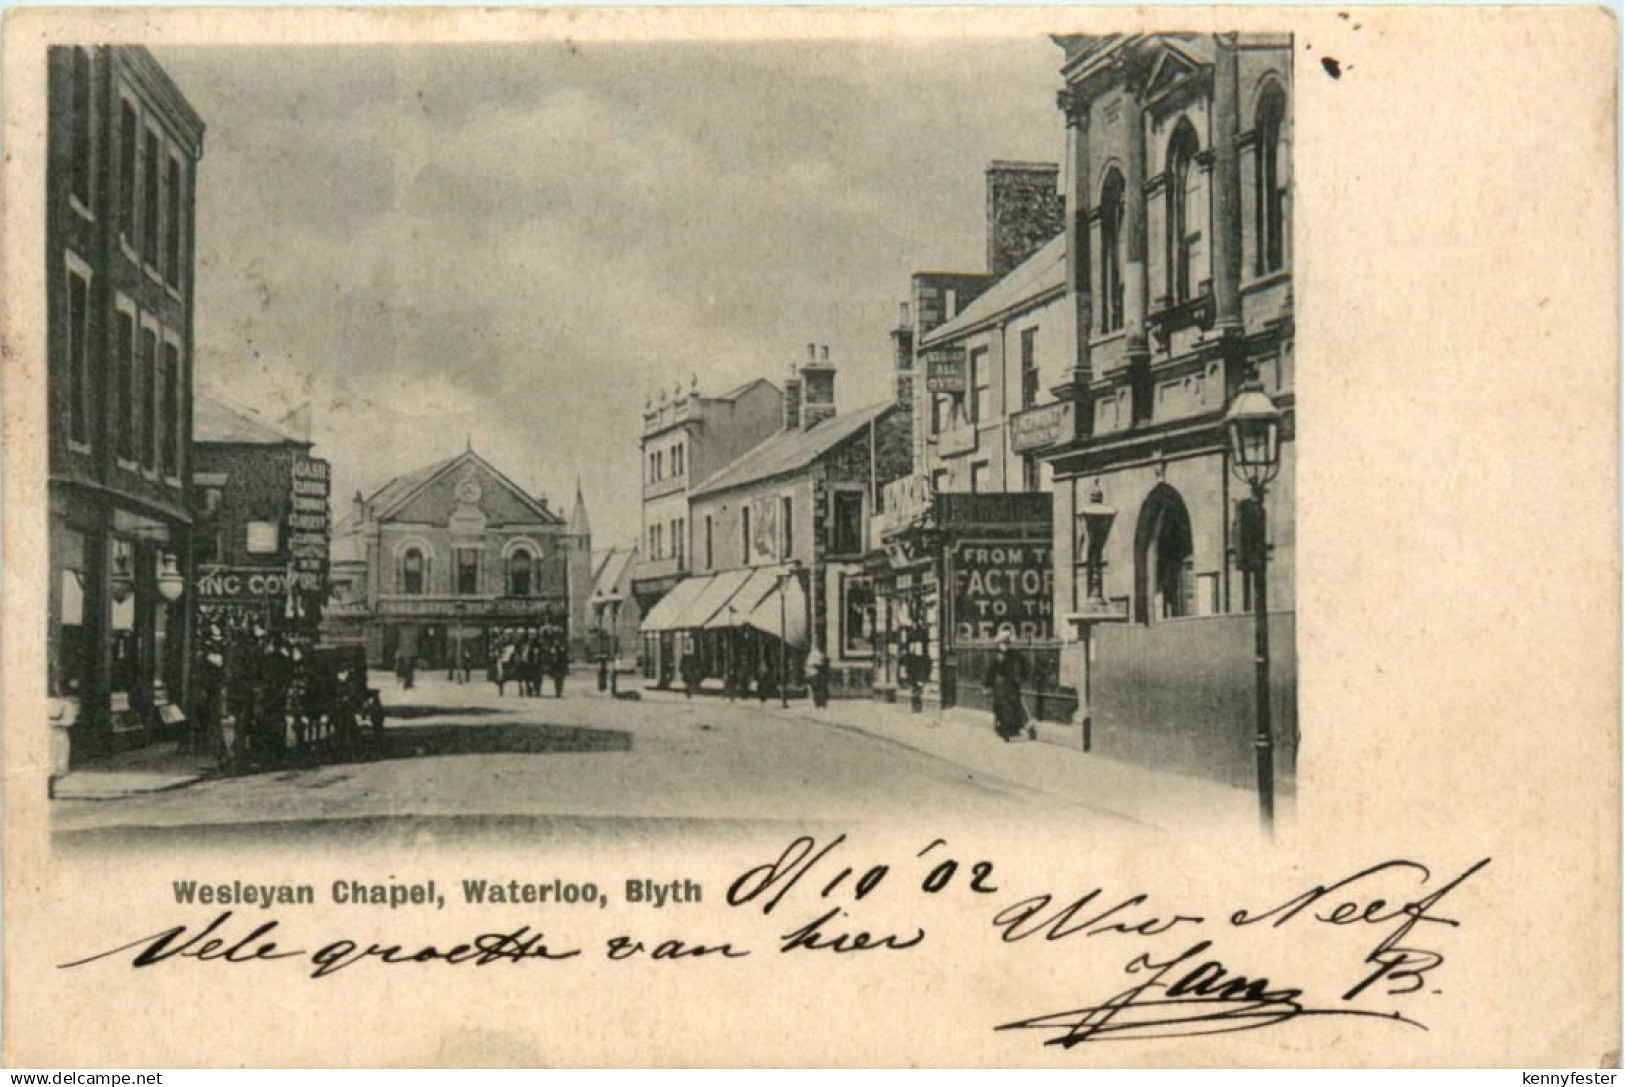 ALL
OVER
ING COY
FROM T
FACTOR
TO TH
PEOPL
Wesleyan Chapel, Waterloo, Blyth
8/10 '02
Vele groette van hier Uw Neef
Jan B.
delcampe.net
kennyfester